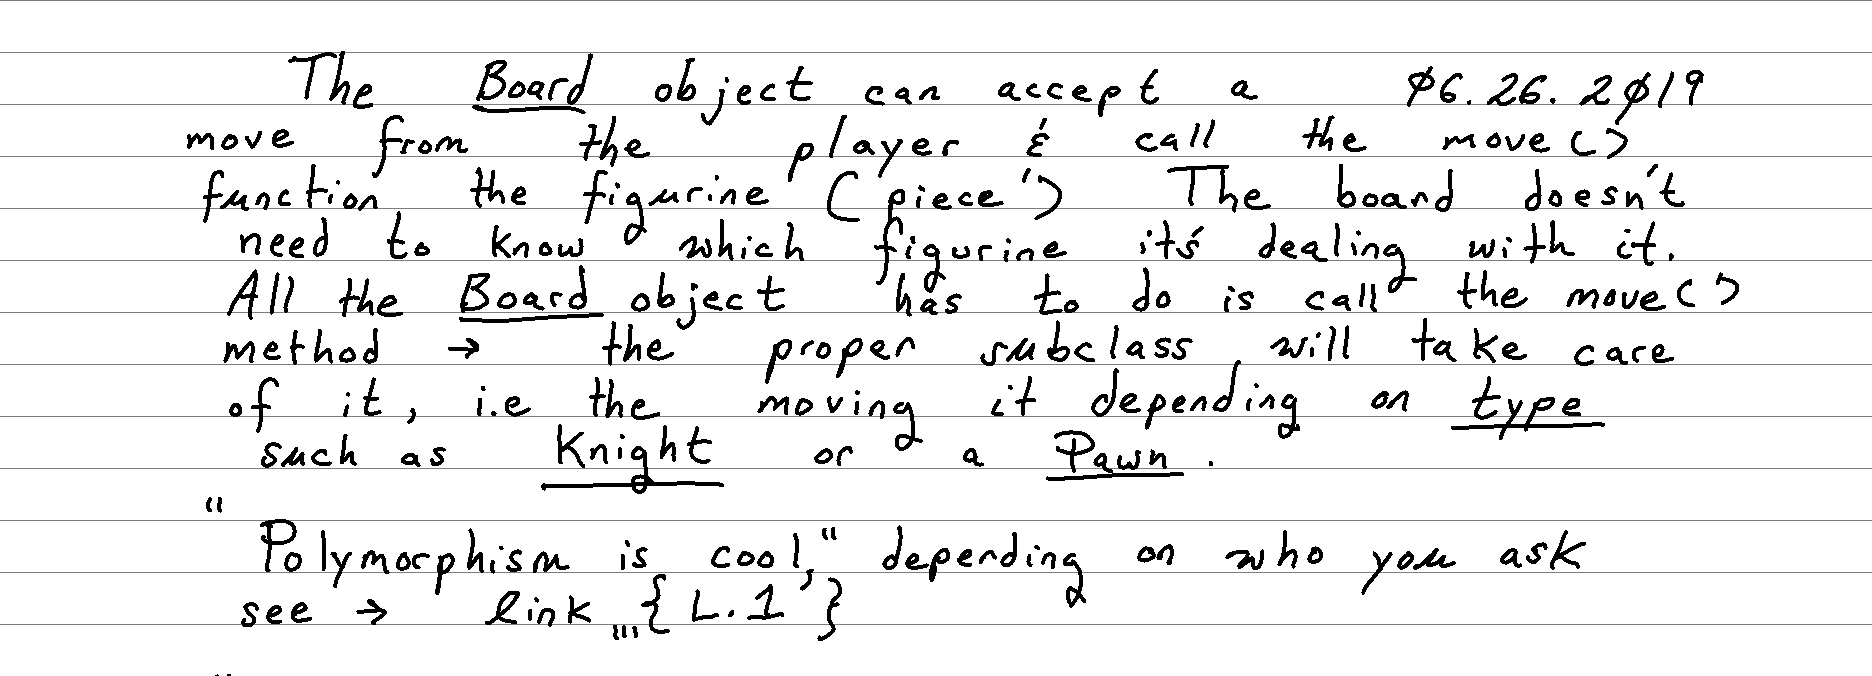 The Board object can accept a Ø6.26.2Ø19
move from the player & call the move()
function the figurine (piece') The board doesn't
need to know which figurine it's dealing with it.
All the Board object has to do is call the move()
method → the proper subclass will take care
of it, i.e the moving it depending on type
such as Knight or a Pawn.
"Polymorphism is cool," depending on who you ask
see → link ,,,{L.1'}